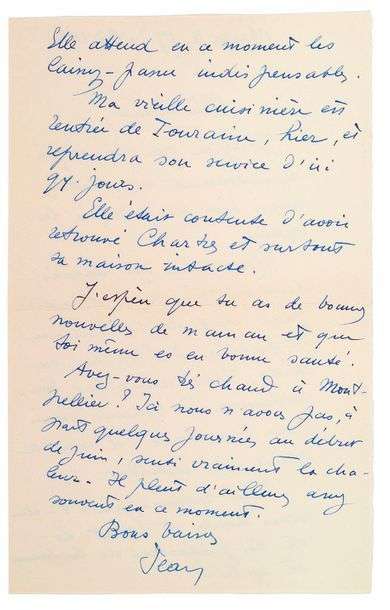 Elle attend en ce moment les
laissez-passer indispensables.
Ma vieille cuisinière est
rentrée de Touraine, hier, et
reprendra son service d'ici
qq. jours.
Elle était contente d'avoir
retrouvé Chartres et surtout
sa maison intacte.
J'espère que tu as de bonnes
nouvelles de maman et que
toi même es en bonne santé.
Avez-vous très chaud à Mont-
pellier? Ici nous n'avons pas, à
part quelques journées au début
de juin, senti vraiment la cha-
leur. Il pleut d'ailleurs assez
souvent en ce moment.
Bons baisers
Jean